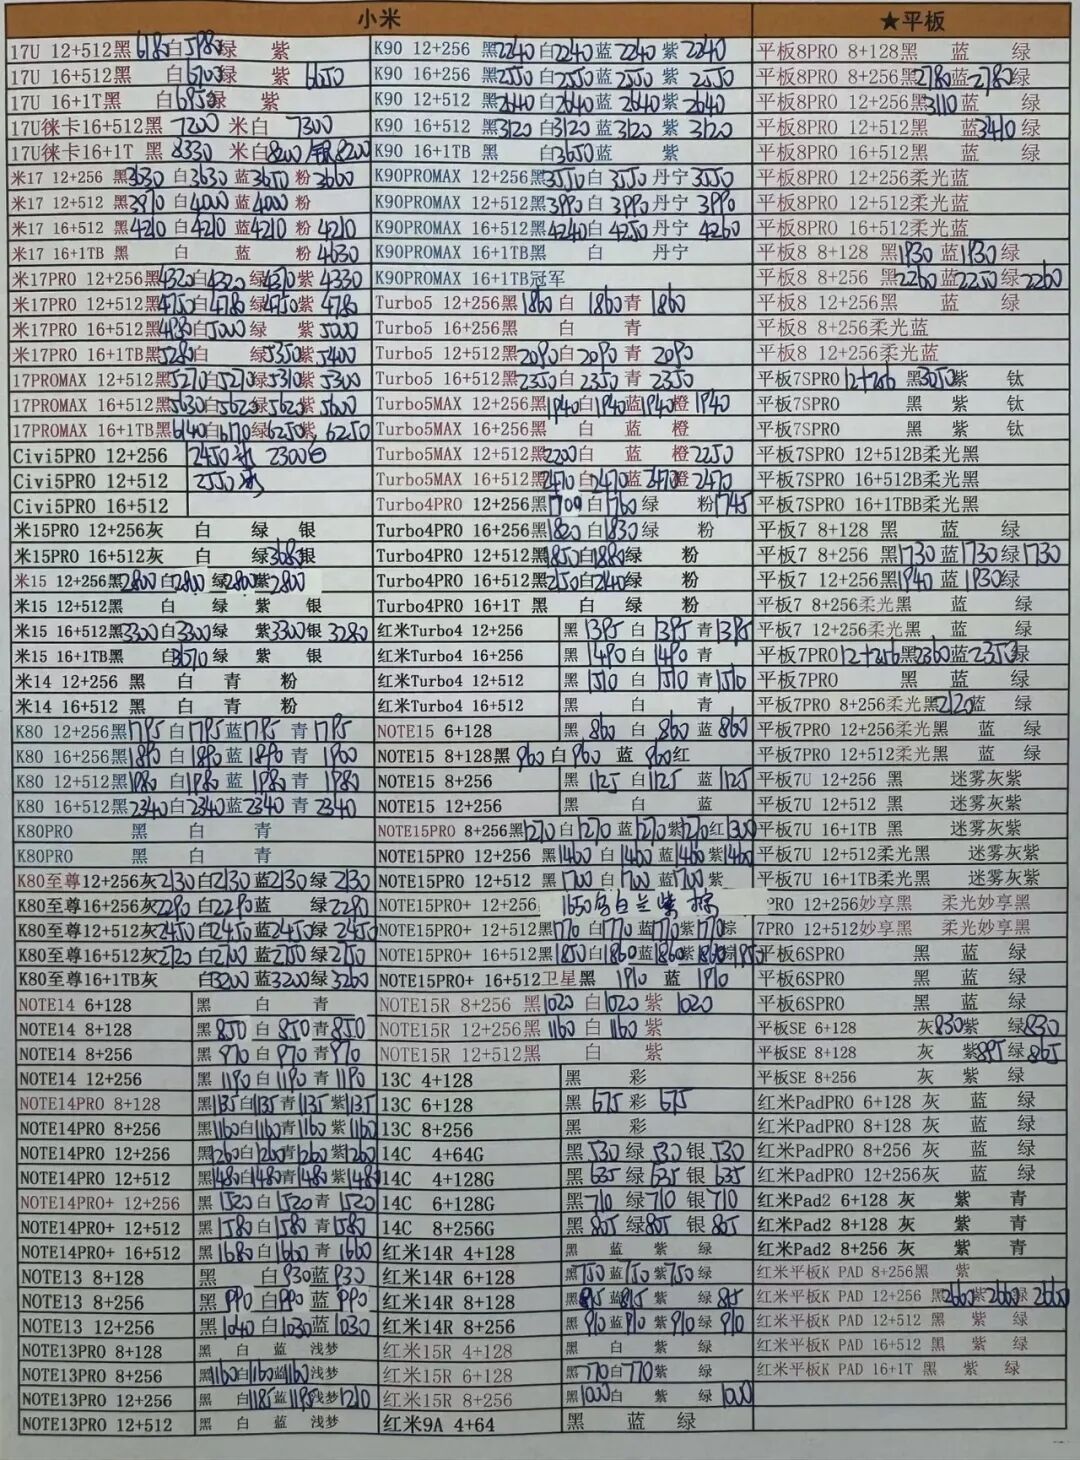 小米
17U 12+512黑6180白5980绿 紫
17U 16+512黑 白6700绿 紫6650
17U 16+1T黑 白6950绿 紫
17U徕卡16+512黑 7200 米白 7300
17U徕卡16+1T 黑 8330 米白8200/银8200
米17 12+256 黑3630 白3630 蓝3650 粉3660
米17 12+512 黑3970 白4000 蓝4000 粉
米17 16+512 黑4210 白4210 蓝4210 粉4210
米17 16+1TB 黑 白 蓝 粉4630
米17PRO 12+256黑4320白4320绿4370紫4330
米17PRO 12+512黑4750白4780绿4750紫4780
米17PRO 16+512黑4930白5000绿 紫5000
米17PRO 16+1TB黑5280白 绿5350紫5400
17PROMAX 12+512黑5270白5270绿5310紫5300
17PROMAX 16+512黑5630白5620绿5620紫5600
17PROMAX 16+1TB黑6140白6170绿6250紫6250
Civi5PRO 12+256 2450 2300白
Civi5PRO 12+512 2550
Civi5PRO 16+512
米15PRO 12+256灰 白 绿 银
米15PRO 16+512灰 白 绿3680银
米15 12+256黑2800白2800绿2800紫2800
米15 12+512黑 白 绿 紫 银
米15 16+512黑3300白3300绿 紫3300银3280
米15 16+1TB黑 白3570绿 紫 银
米14 12+256 黑 白 青 粉
米14 16+512 黑 白 青 粉
K80 12+256黑1795白1795蓝1795青1795
K80 16+256黑1890白1890蓝1890青1900
K80 12+512黑1980白1980蓝1980青1980
K80 16+512黑2340白2340蓝2340青2340
K80PRO 黑 白 青
K80PRO 黑 白 青
K80至尊12+256灰2130白2130蓝2130绿2130
K80至尊16+256灰2290白2290蓝 绿2290
K80至尊12+512灰2450白2450蓝2450绿2450
K80至尊16+512灰2720白2700蓝2750绿2750
K80至尊16+1TB灰 白3200蓝3200绿3260
NOTE14 6+128 黑 白 青
NOTE14 8+128 黑850白850青850
NOTE14 8+256 黑970白970青970
NOTE14 12+256 黑1190白1190青1190
NOTE14PRO 8+128 黑1135白1135青1135紫1135
NOTE14PRO 8+256 黑1160白1160青1160紫1160
NOTE14PRO 12+256 黑1260白1260青1260紫1260
NOTE14PRO 12+512 黑1480白1480青1480紫1480
NOTE14PRO+ 12+256 黑1520白1520青1520
NOTE14PRO+ 12+512 黑1580白1580青1580
NOTE14PRO+ 16+512 黑1680白1660青1660
NOTE13 8+128 黑 白930蓝930
NOTE13 8+256 黑990白990蓝990
NOTE13 12+256 黑1040白1030蓝1030
NOTE13PRO 8+128 黑 白 蓝 浅梦
NOTE13PRO 8+256 黑1160白1160蓝1160浅梦
NOTE13PRO 12+256 黑 白1185蓝1195浅梦1210
NOTE13PRO 12+512 黑 白 蓝 浅梦
K90 12+256 黑2240白2240蓝2240紫2240
K90 16+256 黑2550白2550蓝2550紫2550
K90 12+512 黑2640白2640蓝2640紫2640
K90 16+512 黑3120白3120蓝3120紫3120
K90 16+1TB 黑 白3650蓝 紫
K90PROMAX 12+256黑3550白3550丹宁3550
K90PROMAX 12+512黑3990白3990丹宁3990
K90PROMAX 16+512黑4240白4250丹宁4260
K90PROMAX 16+1TB黑 白 丹宁
K90PROMAX 16+1TB冠军
Turbo5 12+256黑1860白1860青1860
Turbo5 16+256黑 白 青
Turbo5 12+512黑2090白2090青2090
Turbo5 16+512黑2350白2350青2350
Turbo5MAX 12+256黑1940白1940蓝1940橙1940
Turbo5MAX 16+256黑 白 蓝 橙
Turbo5MAX 12+512黑2200白 蓝 橙2250
Turbo5MAX 16+512黑2470白2470蓝2470橙2470
Turbo4PRO 12+256黑1700白1760绿 粉1745
Turbo4PRO 16+256黑1820白1830绿 粉
Turbo4PRO 12+512黑1850白1880绿 粉
Turbo4PRO 16+512黑2150白2140绿 粉
Turbo4PRO 16+1T 黑 白 绿 粉
红米Turbo4 12+256 黑1395白1395青1395
红米Turbo4 16+256 黑1490白1490青
红米Turbo4 12+512 黑1510白1510青1510
红米Turbo4 16+512 黑 白 青
NOTE15 6+128 黑860白860蓝860
NOTE15 8+128黑960白960蓝960红
NOTE15 8+256 黑1125白1125蓝1125
NOTE15 12+256 黑 白 蓝
NOTE15PRO 8+256黑1270白1270蓝1270紫1270红1300
NOTE15PRO 12+256 黑1460白1460蓝1460紫1460
NOTE15PRO 12+512 黑1700白1700蓝1700紫
NOTE15PRO+ 12+256 1650
NOTE15PRO+ 12+512黑1770白1770蓝1770紫1770棕
NOTE15PRO+ 16+512黑1850白1860蓝1860紫1860棕1850
NOTE15PRO+ 16+512卫星黑 1910 蓝 1910
NOTE15R 8+256 黑1020白1020紫1020
NOTE15R 12+256黑1160白1160紫
NOTE15R 12+512黑 白 紫
13C 4+128 黑 彩
13C 6+128 黑675彩675
13C 8+256 黑 彩
14C 4+64G 黑530绿530银530
14C 4+128G 黑635绿635银635
14C 6+128G 黑710绿710银710
14C 8+256G 黑805绿805银805
红米14R 4+128 黑 蓝 紫 绿
红米14R 6+128 黑750蓝750紫750绿
红米14R 8+128 黑815蓝815紫 绿815
红米14R 8+256 黑910蓝910紫910绿910
红米15R 4+128 黑 白 紫 绿
红米15R 6+128 黑770白770紫 绿
红米15R 8+256 黑1000白 紫 绿1000
红米9A 4+64 黑 蓝 绿
★平板
平板8PRO 8+128黑 蓝 绿
平板8PRO 8+256黑2780蓝2780绿
平板8PRO 12+256黑3110蓝 绿
平板8PRO 12+512黑 蓝3410绿
平板8PRO 16+512黑 蓝 绿
平板8PRO 12+256柔光蓝
平板8PRO 12+512柔光蓝
平板8PRO 16+512柔光蓝
平板8 8+128 黑1930蓝1930绿
平板8 8+256 黑2260蓝2250绿2260
平板8 12+256黑 蓝 绿
平板8 8+256柔光蓝
平板8 12+256柔光蓝
平板7SPRO 12+256 黑3050紫 钛
平板7SPRO 黑 紫 钛
平板7SPRO 黑 紫 钛
平板7SPRO 12+512B柔光黑
平板7SPRO 16+512B柔光黑
平板7SPRO 16+1TBB柔光黑
平板7 8+128 黑 蓝 绿
平板7 8+256 黑1730蓝1730绿1730
平板7 12+256黑1940蓝1930绿
平板7 8+256柔光黑 蓝 绿
平板7 12+256柔光黑 蓝 绿
平板7PRO12+256黑2360蓝2350绿
平板7PRO 黑 蓝 绿
平板7PRO 8+256柔光黑2120蓝 绿
平板7PRO 12+256柔光黑 蓝 绿
平板7PRO 12+512柔光黑 蓝 绿
平板7U 12+256 黑 迷雾灰紫
平板7U 12+512 黑 迷雾灰紫
平板7U 16+1TB 黑 迷雾灰紫
平板7U 12+512柔光黑 迷雾灰紫
平板7U 16+1TB柔光黑 迷雾灰紫
PRO 12+256妙享黑 柔光妙享黑
7PRO 12+512妙享黑 柔光妙享黑
平板6SPRO 黑 蓝 绿
平板6SPRO 黑 蓝 绿
平板6SPRO 黑 蓝 绿
平板SE 6+128 灰830紫 绿830
平板SE 8+128 灰 紫895绿865
平板SE 8+256 灰 紫 绿
红米PadPRO 6+128 灰 蓝 绿
红米PadPRO 8+128 灰 蓝 绿
红米PadPRO 8+256 灰 蓝 绿
红米PadPRO 12+256灰 蓝 绿
红米Pad2 6+128 灰 紫 青
红米Pad2 8+128 灰 紫 青
红米Pad2 8+256 灰 紫 青
红米平板K PAD 8+256黑 紫
红米平板K PAD 12+256 黑2660紫2660绿2660
红米平板K PAD 12+512 黑 紫 绿
红米平板K PAD 16+512 黑 紫 绿
红米平板K PAD 16+1T 黑 紫 绿